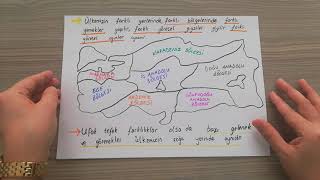 Ülkemizin farklı yerlerinde, farklı bölgelerinde farklı
yemekler yapılır, farklı yöresel giysiler giyilir farklı
yöresel oyunlar oynanır.
KARADENİZ BÖLGESİ
MARMARA
İÇ ANADOLU
BÖLGESİ
DOĞU ANADOLU
BÖLGESİ
EGE
BÖLGESİ
AKDENİZ
BÖLGESİ
GÜNEYDOĞU
ANADOLU
BÖLGESİ
Ufak tefek farklılıklar olsa da bazı gelenek
ve görenekler ülkemizin çoğu yerinde aynıdır.